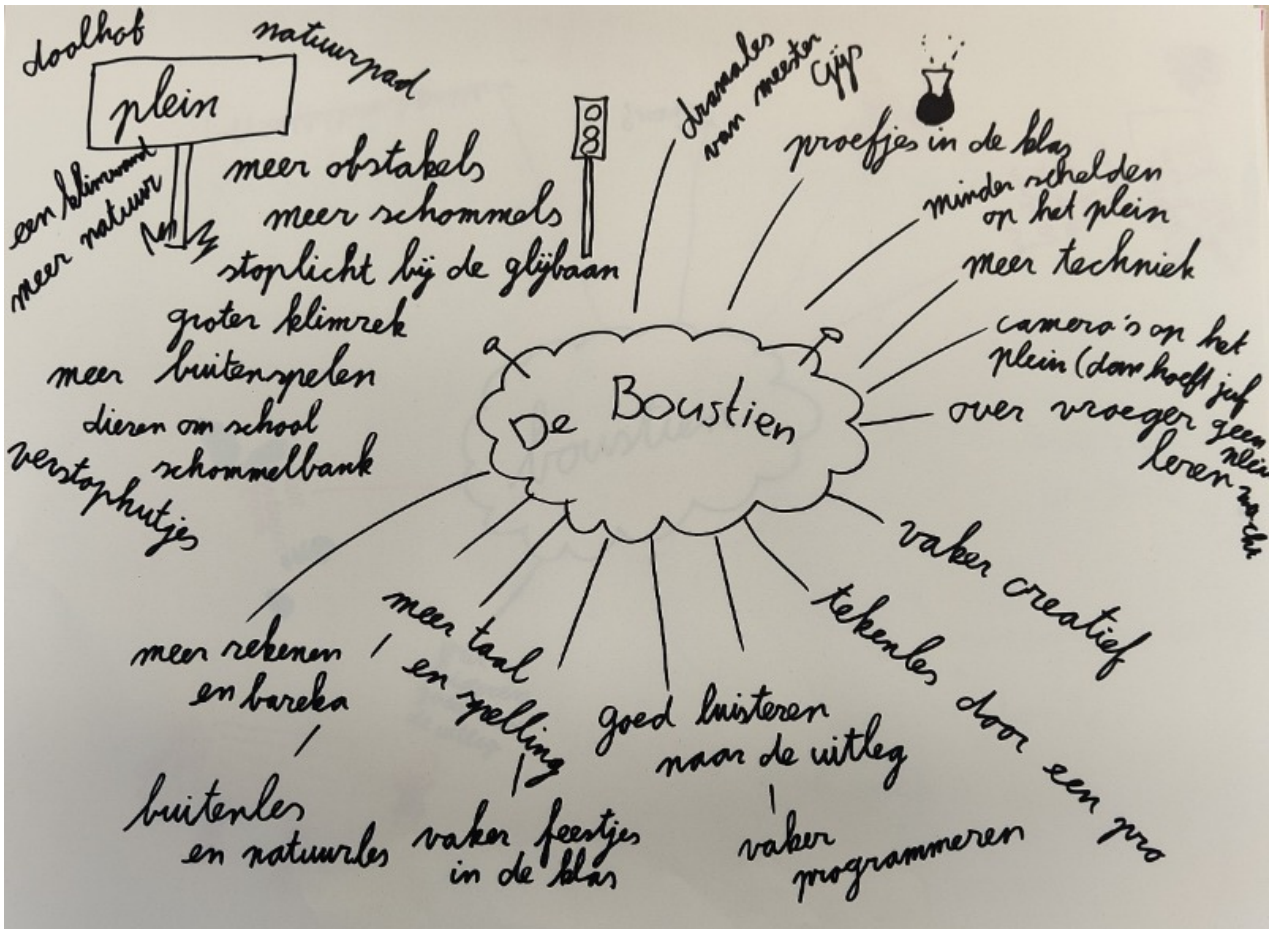 doolhof
natuurpad
plein
een klimwand
meer natuur
meer obstakels
meer schommels
stoplicht bij de glijbaan
groter klimrek
meer buitenspelen
dieren om school
schommelbank
verstophutjes
dramales
van meester
Gijs
proefjes in de klas
minder schelden
op het plein
meer techniek
camera's op het
plein (dan hoeft juf
geen
plein
wacht
over vroeger
leren
De Boustien
vaker creatief
tekenles door een pro
goed luisteren
naar de uitleg
vaker
programmeren
meer taal
en spelling
vaker feestjes
in de klas
meer rekenen
en bareka
buitenles
en natuurles